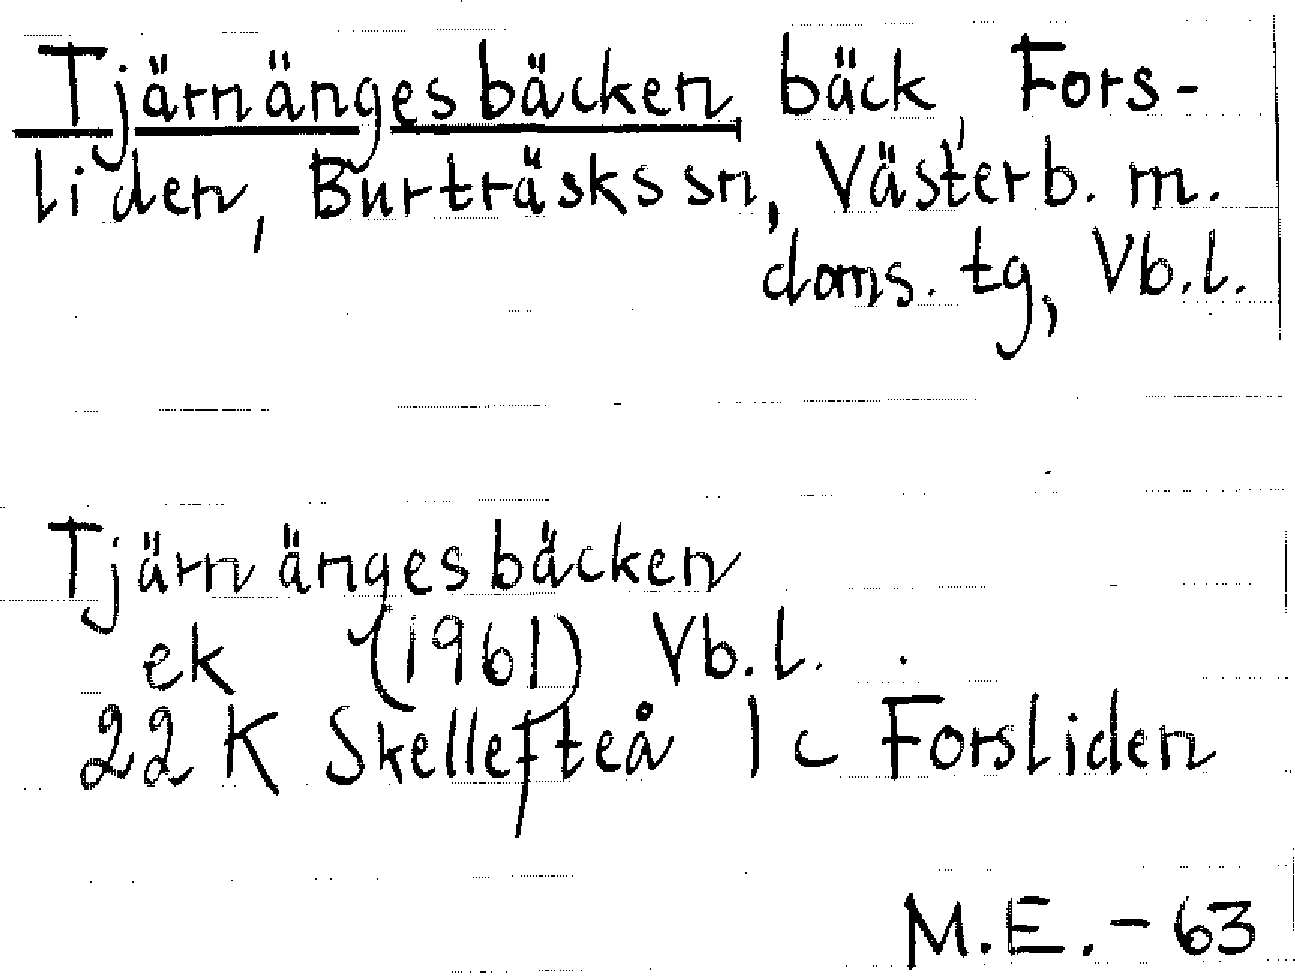 Tjärnängesbäcken bäck, Fors-
liden, Burträsks sn, Västerb. m.
doms. tg, Vb.l.
Tjärnängesbäcken
ek (1961) Vb.l.
22 K Skellefteå 1 c Forsliden
M.E. - 63